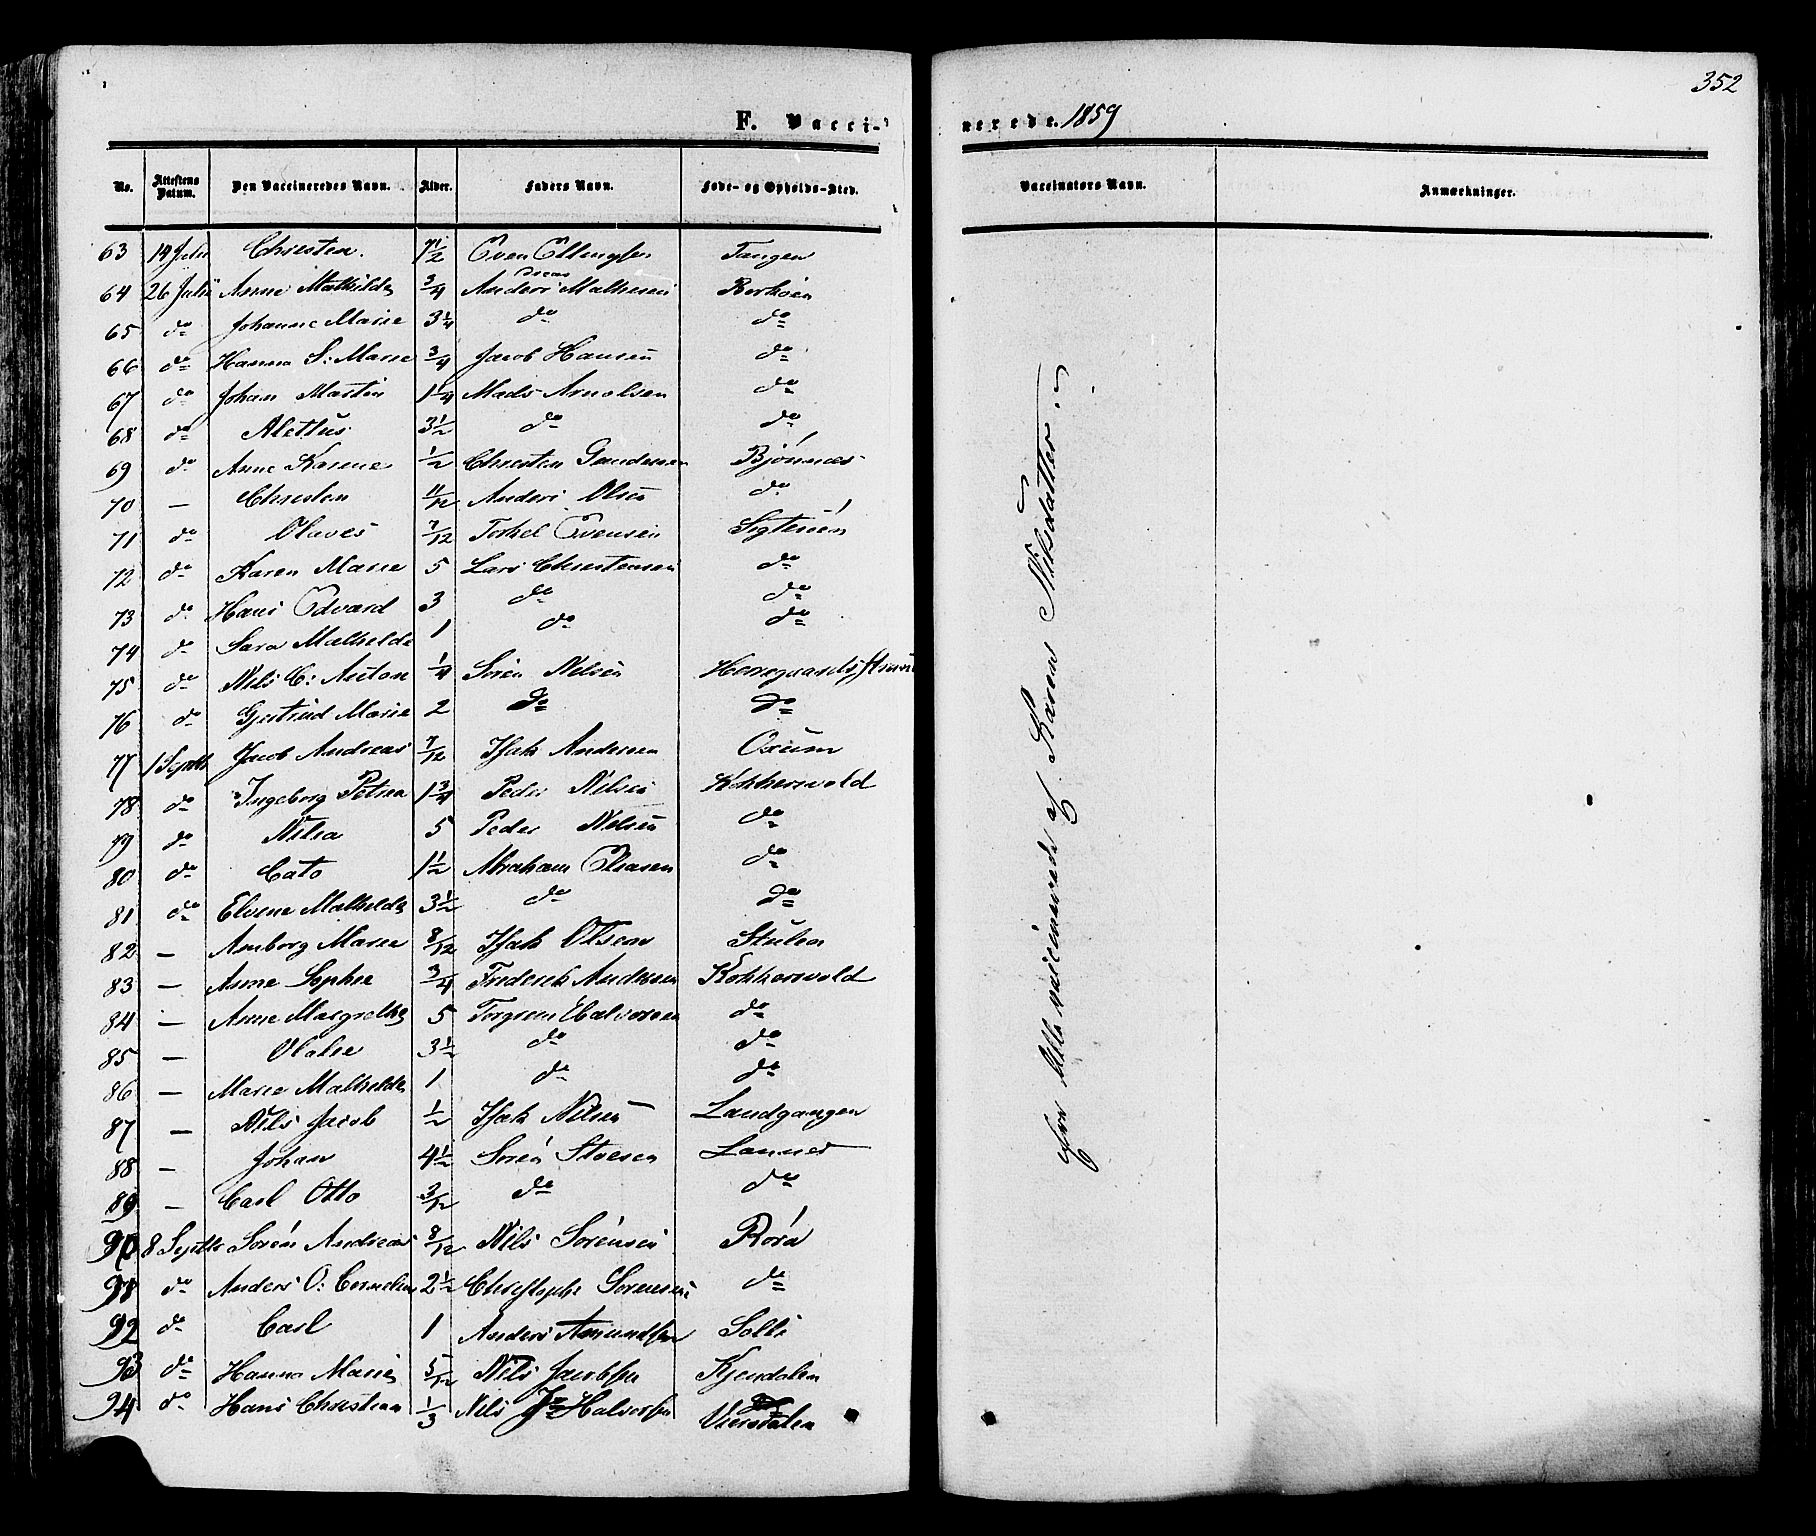 352
F. Vacci-
nerede. 1859
No. Attestens Datum. Den Vaccineredes Navn. Alder. Faders Navn. Føde- og Opholds-Sted. Vaccinators Navn. Anmærkninger.
63 14 Juli Christen. 7 1/2 Even Ellingsen Tangen
64 26 Juli Anne Mathilde 3/4 Anders Mathesen Berhöen
65 do Johanne Marie 3 1/4 do do
66 do Hanna S: Marie 3/4 Jacob Hansen do
67 do Johan Martin 1 1/4 Mads Arnolsen do
68 do Alettus 3 1/2 do do
69 do Anne Karine 1/2 Christen Gundersen Bjönnes
70 — Christen 11/12 Anders Olsen do
71 do Olaves 7/12 Torkel Evensen Sigtesöen
72 do Karen Marie 5 Lars Christensen do
73 do Hans Edvard 3 do do
74 do Sara Mathilde 1 do do
75 do Nils C: Anton 1/4 Sören Nilsen
76 do Gjertrud Marie 2 do do
77 1 Septb Jacob Andreas 7/12 Isak Andersen Oxum
78 do Ingeborg Petrea 1 3/4 Peder Nilsen Kokkersvold
79 do Nilia 5 Peder Nilsen do
80 do Cato 1 1/2 Abraham Eliasen do
81 do Elvine Mathilde 3 1/2 do do
82 — Amborg Marie 8/12 Isak Olsen Stulen
83 — Anne Sophie 3/4 Frederik Andersen Kokkersvold
84 — Anne Margrethe 5 Torgrim Halvorsen do
85 — Olalie 3 1/2 do do
86 — Marie Mathilde 1 do do
87 — Nils Jacob 1/2 Isak Nilsen Landgangen
88 — Johan 4 1/2 Sören Stoesen Lanner
89 — Carl Otto 3/12 do do
90 8 Septb Sören Andreas 8/12 Nils Sörensen Röra
91 do Anders O: Cornelius 2 1/2 Christophr Sörensen do
92 do Carl 1 Anders Amundsen Solli
93 do Hanna Marie 5/12 Nils Jacobsen Kjendalen
94 do Hans Christian 1/3 Nils Halvorsen Viersdalen
Alle vaccinerede af Karen Nilsdatter